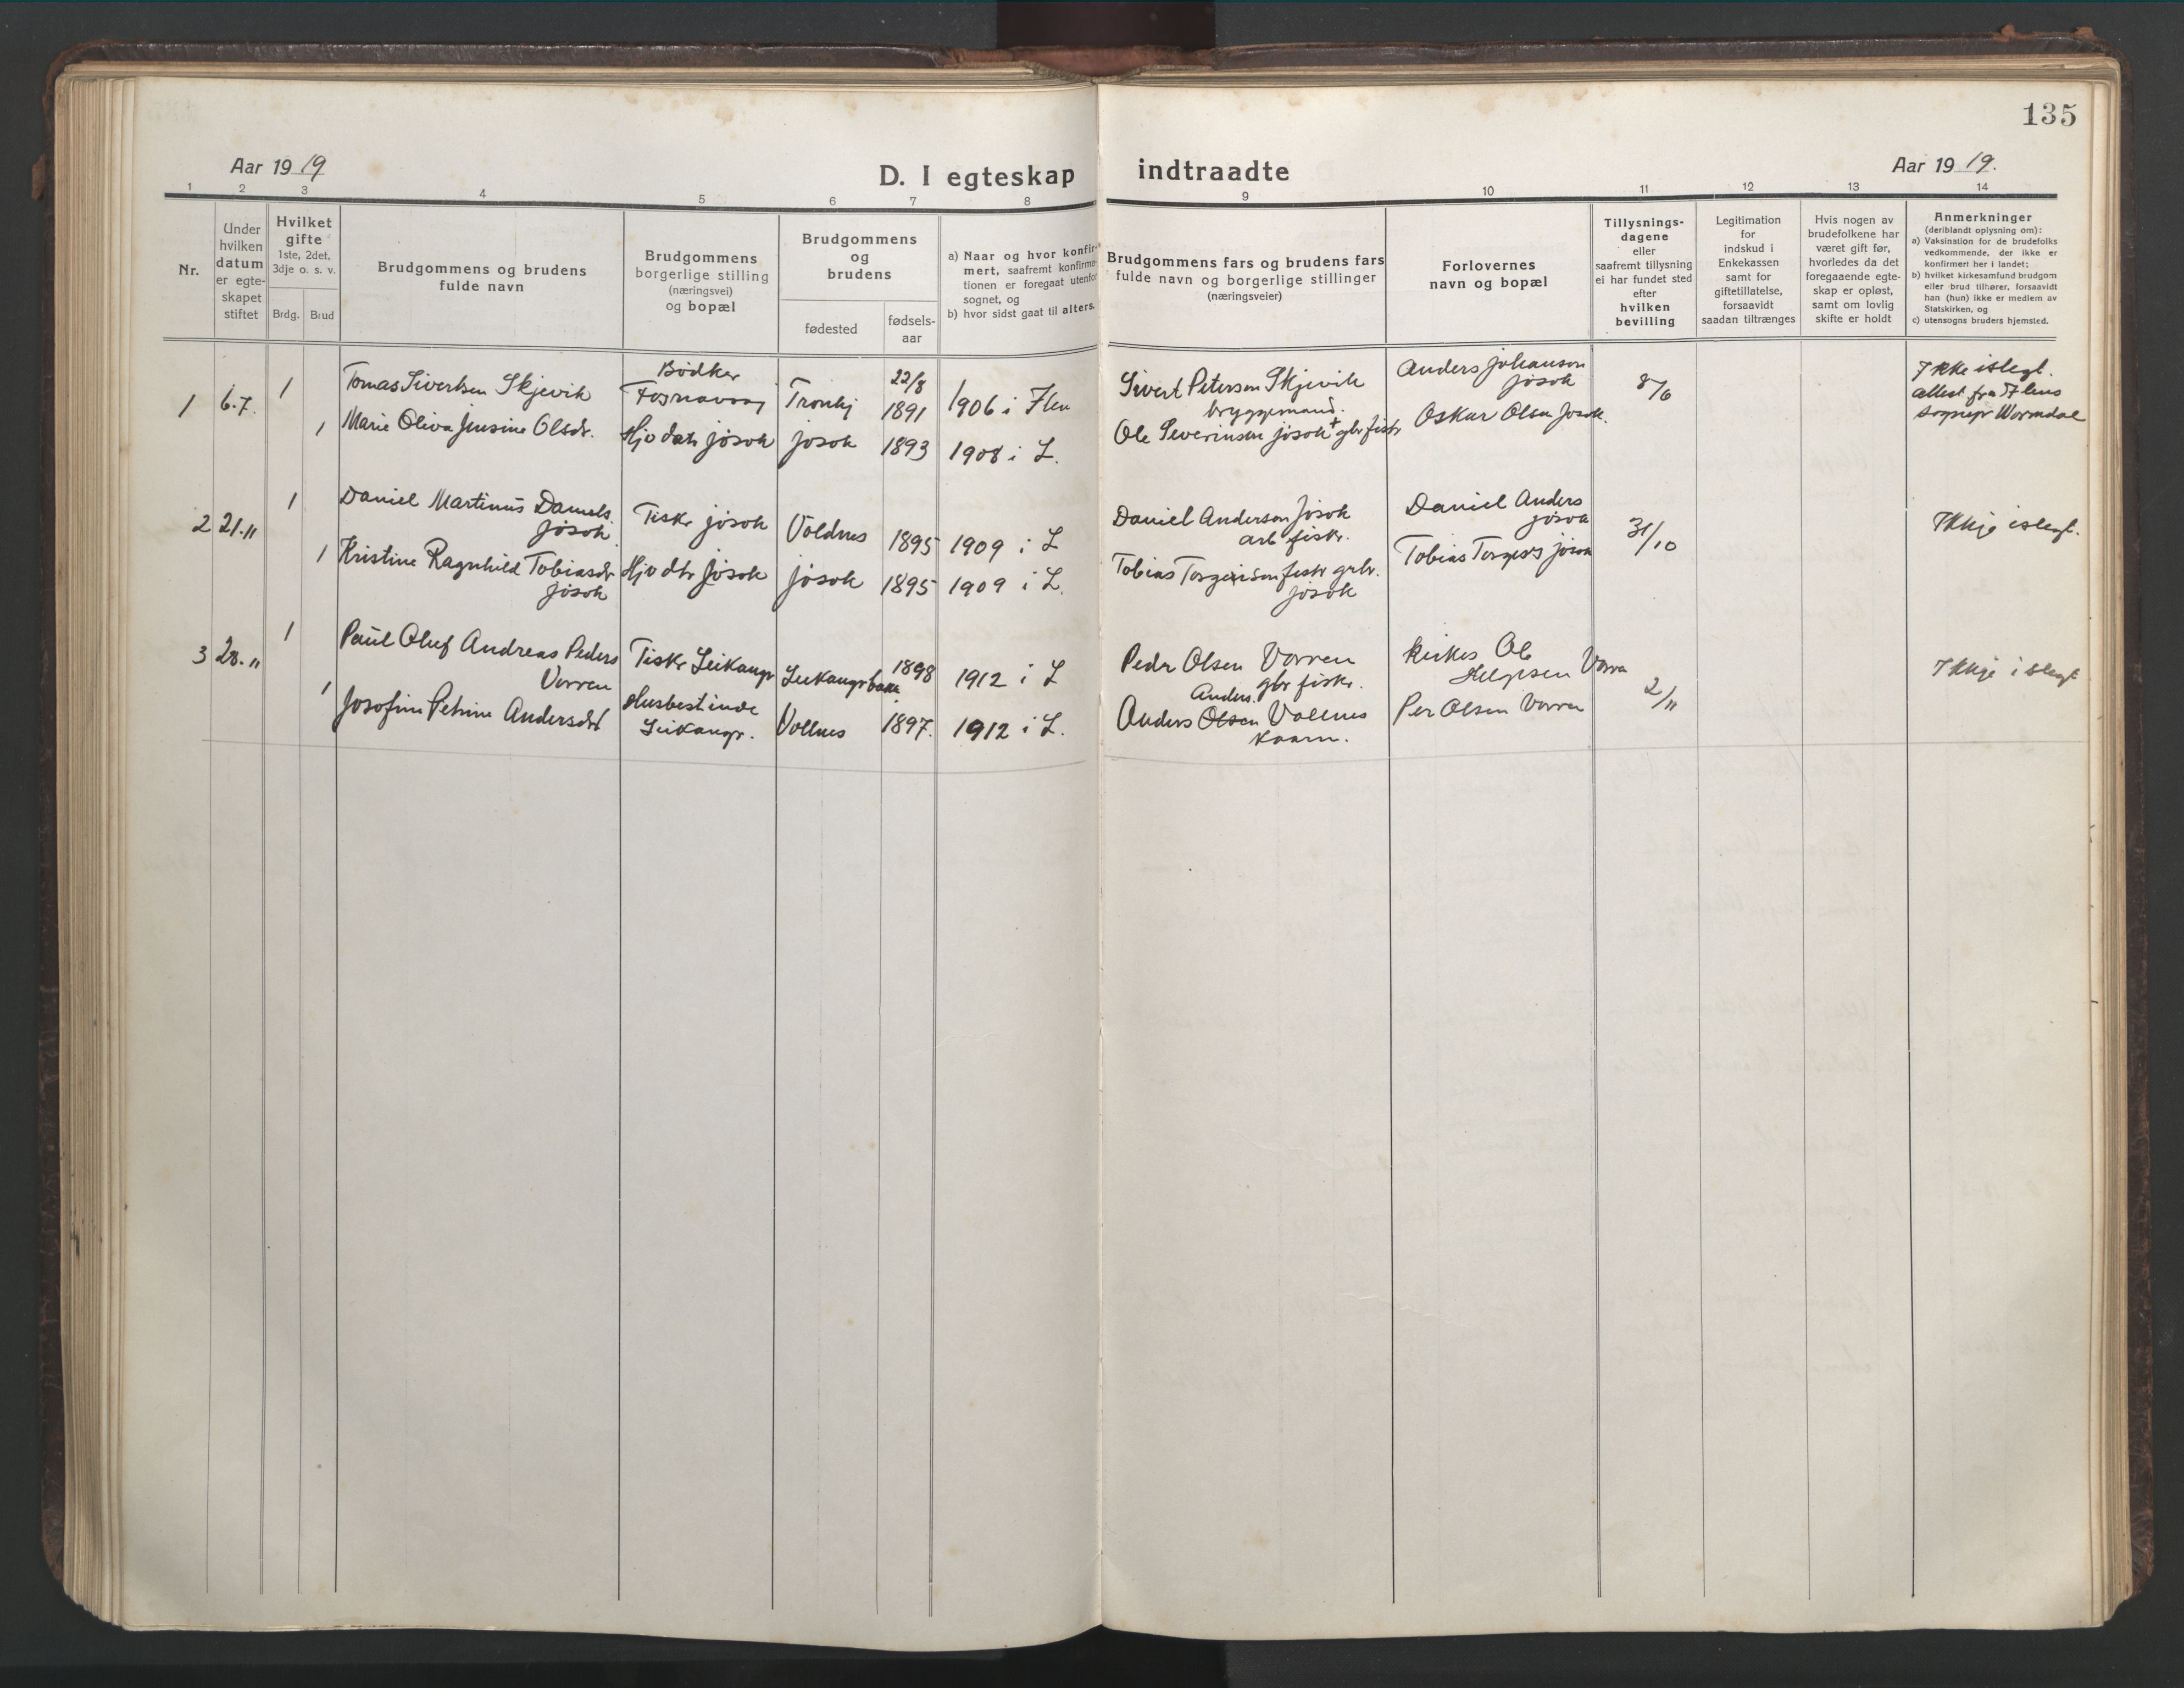 135
Aar 19 19
D. I egteskap indtraadte
Aar 19 19.
1 2 3 4 5 6 7 8 9 10 11 12 13 14
Nr.
Under
hvilken
datum
er egte-
skapet
stiftet
Hvilket
gifte
1ste, 2det,
3dje o. s. v.
Brdg. Brud
Brudgommens og brudens
fulde navn
Brudgommens
borgerlige stilling
(næringsvei)
og bopæl
Brudgommens
og
brudens
fødested
fødsels-
aar
a) Naar og hvor konfir-
mert, saafremt konfirma-
tionen er foregaat utenfor
sognet, og
b) hvor sidst gaat til alters.
Brudgommens fars og brudens fars
fulde navn og borgerlige stillinger
(næringsveier)
Forlovernes
navn og bopæl
Tillysnings-
dagene
eller
saafremt tillysning
ei har fundet sted
efter
hvilken
bevilling
Legitimation
for
indskud i
Enkekassen
samt for
giftetillatelse,
forsaavidt
saadan tiltrænges
Hvis nogen av
brudefolkene har
været gift før,
hvorledes da det
foregaaende egte-
skap er opløst,
samt om lovlig
skifte er holdt
Anmerkninger
(deriblandt oplysning om):
a) Vaksination for de brudefolks
vedkommende, der ikke er
konfirmert her i landet;
b) hvilket kirkesamfund brudgom
eller brud tilhører, forsaavidt
han (hun) ikke er medlem av
Statskirken, og
c) utensogns bruders hjemsted.
1 6.7. 1
Tomas Sivertsen Skjevik
Bødker
Fosnavaag
Tronhj
22/8
1891
1906 i Ilen
Sivert Peterson Skjevik
bryggemand.
Anders Johanson
Jøsok
8/6
Ikke i slegt.
attest fra Ilens
sognepr Wormdal
1
Marie Oliva Jensine Olsdr.
Hjv datr Jøsok
Jøsok
1893
1908 i L.
Ole Severinsen Jøsok + gbr fiskr
Oskar Olsen Jøsok.
2 21.11 1
Daniel Martinus Daniels.
Jøsok.
Fiskr Jøsok
Voldnes
1895
1909 i L
Daniel Anderson Jøsok
arb fiskr.
Daniel Anders
Jøsok
31/10
Ikkje i slegt.
1
Kristine Ragnhild Tobiasdr
Jøsok
Hjv dtr Jøsok
Jøsok
1895
1909 i L.
Tobias Torgeirson fiskr gbr.
Jøsok
Tobias Torgeirs Jøsok
3 28.11 1
Paul Oluf Andreas Peders
Vorren
Fiskr Leikangr
Leikangrbakk
1898
1912 i L
Pedr Olsen Vorren
gbr fiskr.
kirkes Ole
Helgesen Vorre
2/11
Ikkje i slegt
1
Josofine Petrine Andersdt
Husbestinde
Leikangr.
Vollnes
1897.
1912 i L.
Anders.
Anders Olsen Vollnes
kaarm.
Per Olsen Vorren